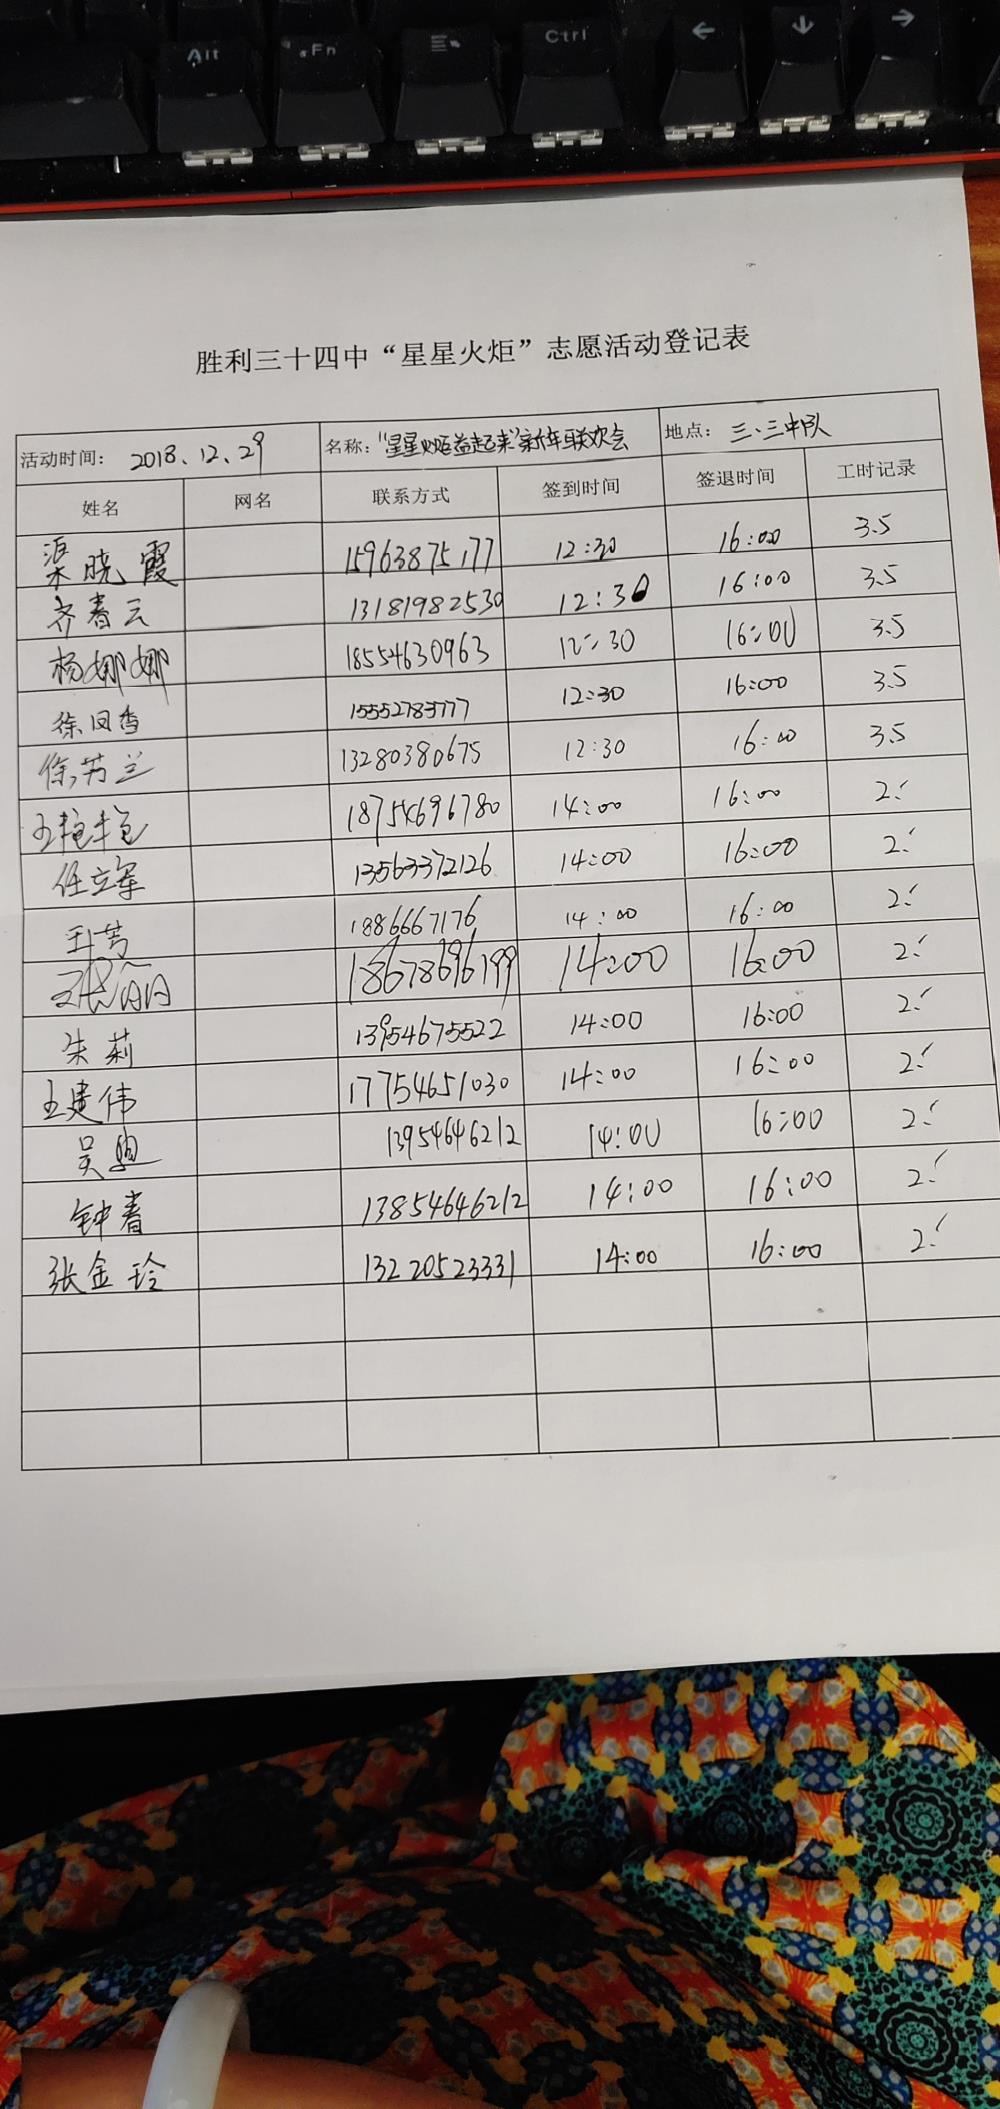 Alt Fn Ctrl ← ↓ →
胜利三十四中“星星火炬”志愿活动登记表
活动时间： 2018.12.29 名称：“星星火炬益起来”新年联欢会 地点： 三.三中队
姓名 网名 联系方式 签到时间 签退时间 工时记录
渠晓霞 15963875177 12:30 16:00 3.5
齐春云 13181982530 12:30 16:00 3.5
杨娜娜 18554630963 12:30 16:00 3.5
徐凤香 15552783777 12:30 16:00 3.5
徐芳兰 13280380675 12:30 16:00 3.5
王艳艳 18754696780 14:00 16:00 2.
任立军 13563372126 14:00 16:00 2.
芳 1886667176 14:00 16:00 2.
张丽 18678696199 14:00 16:00 2.
朱莉 13954675522 14:00 16:00 2.
王建伟 17754651030 14:00 16:00 2.
吴 13954646212 14:00 16:00 2.
钟春 13854646212 14:00 16:00 2.
张金玲 13220523331 14:00 16:00 2.